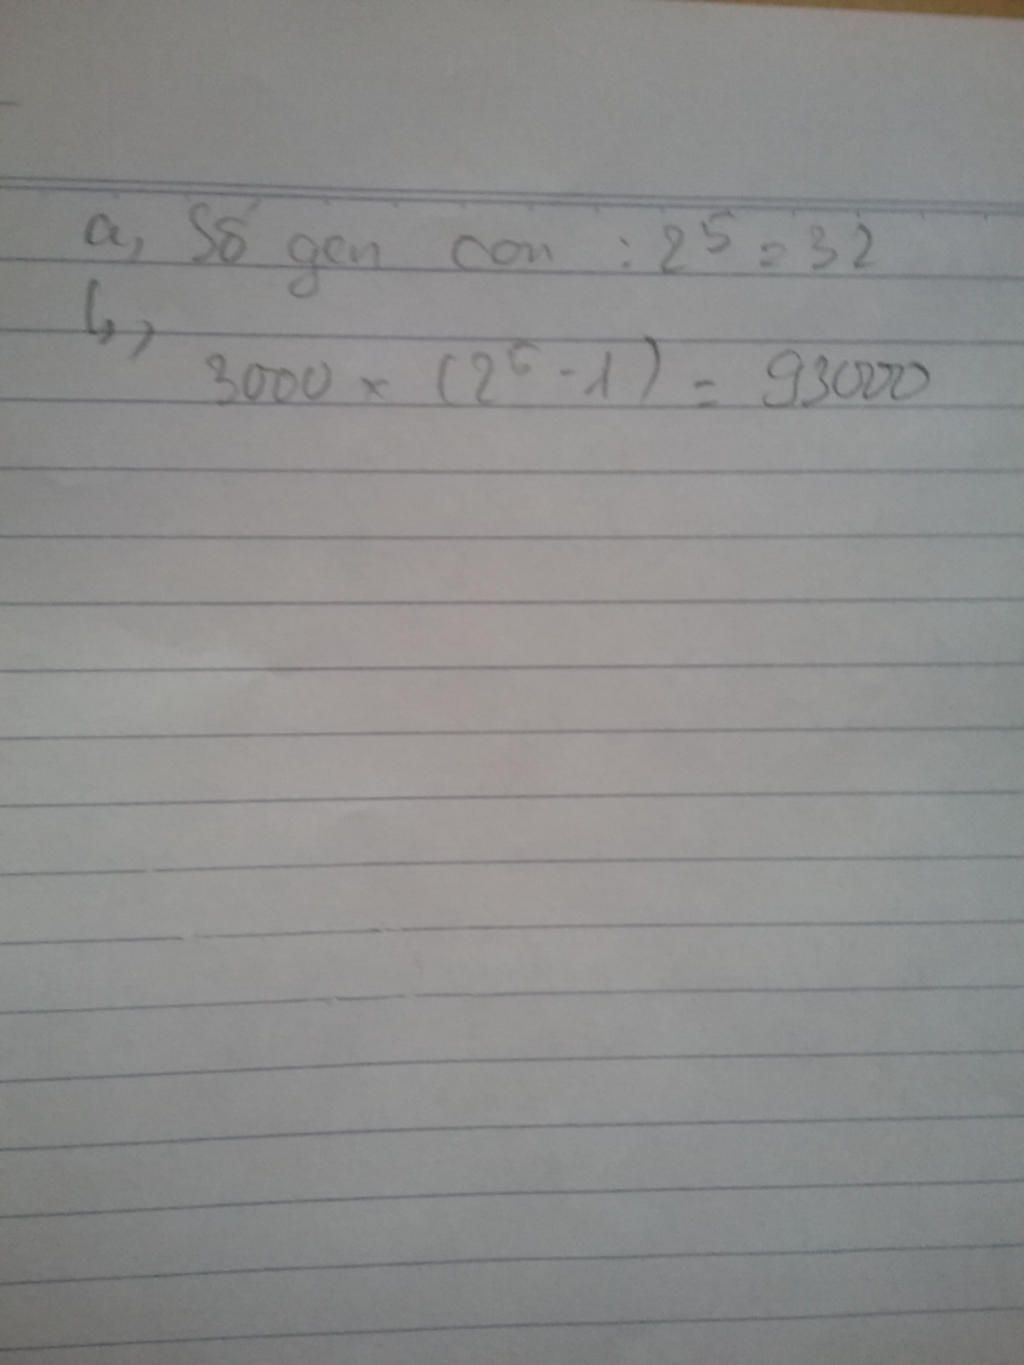 a, Số gen con : 2⁵ = 32
b,
3000 x (2⁵ - 1) = 93000